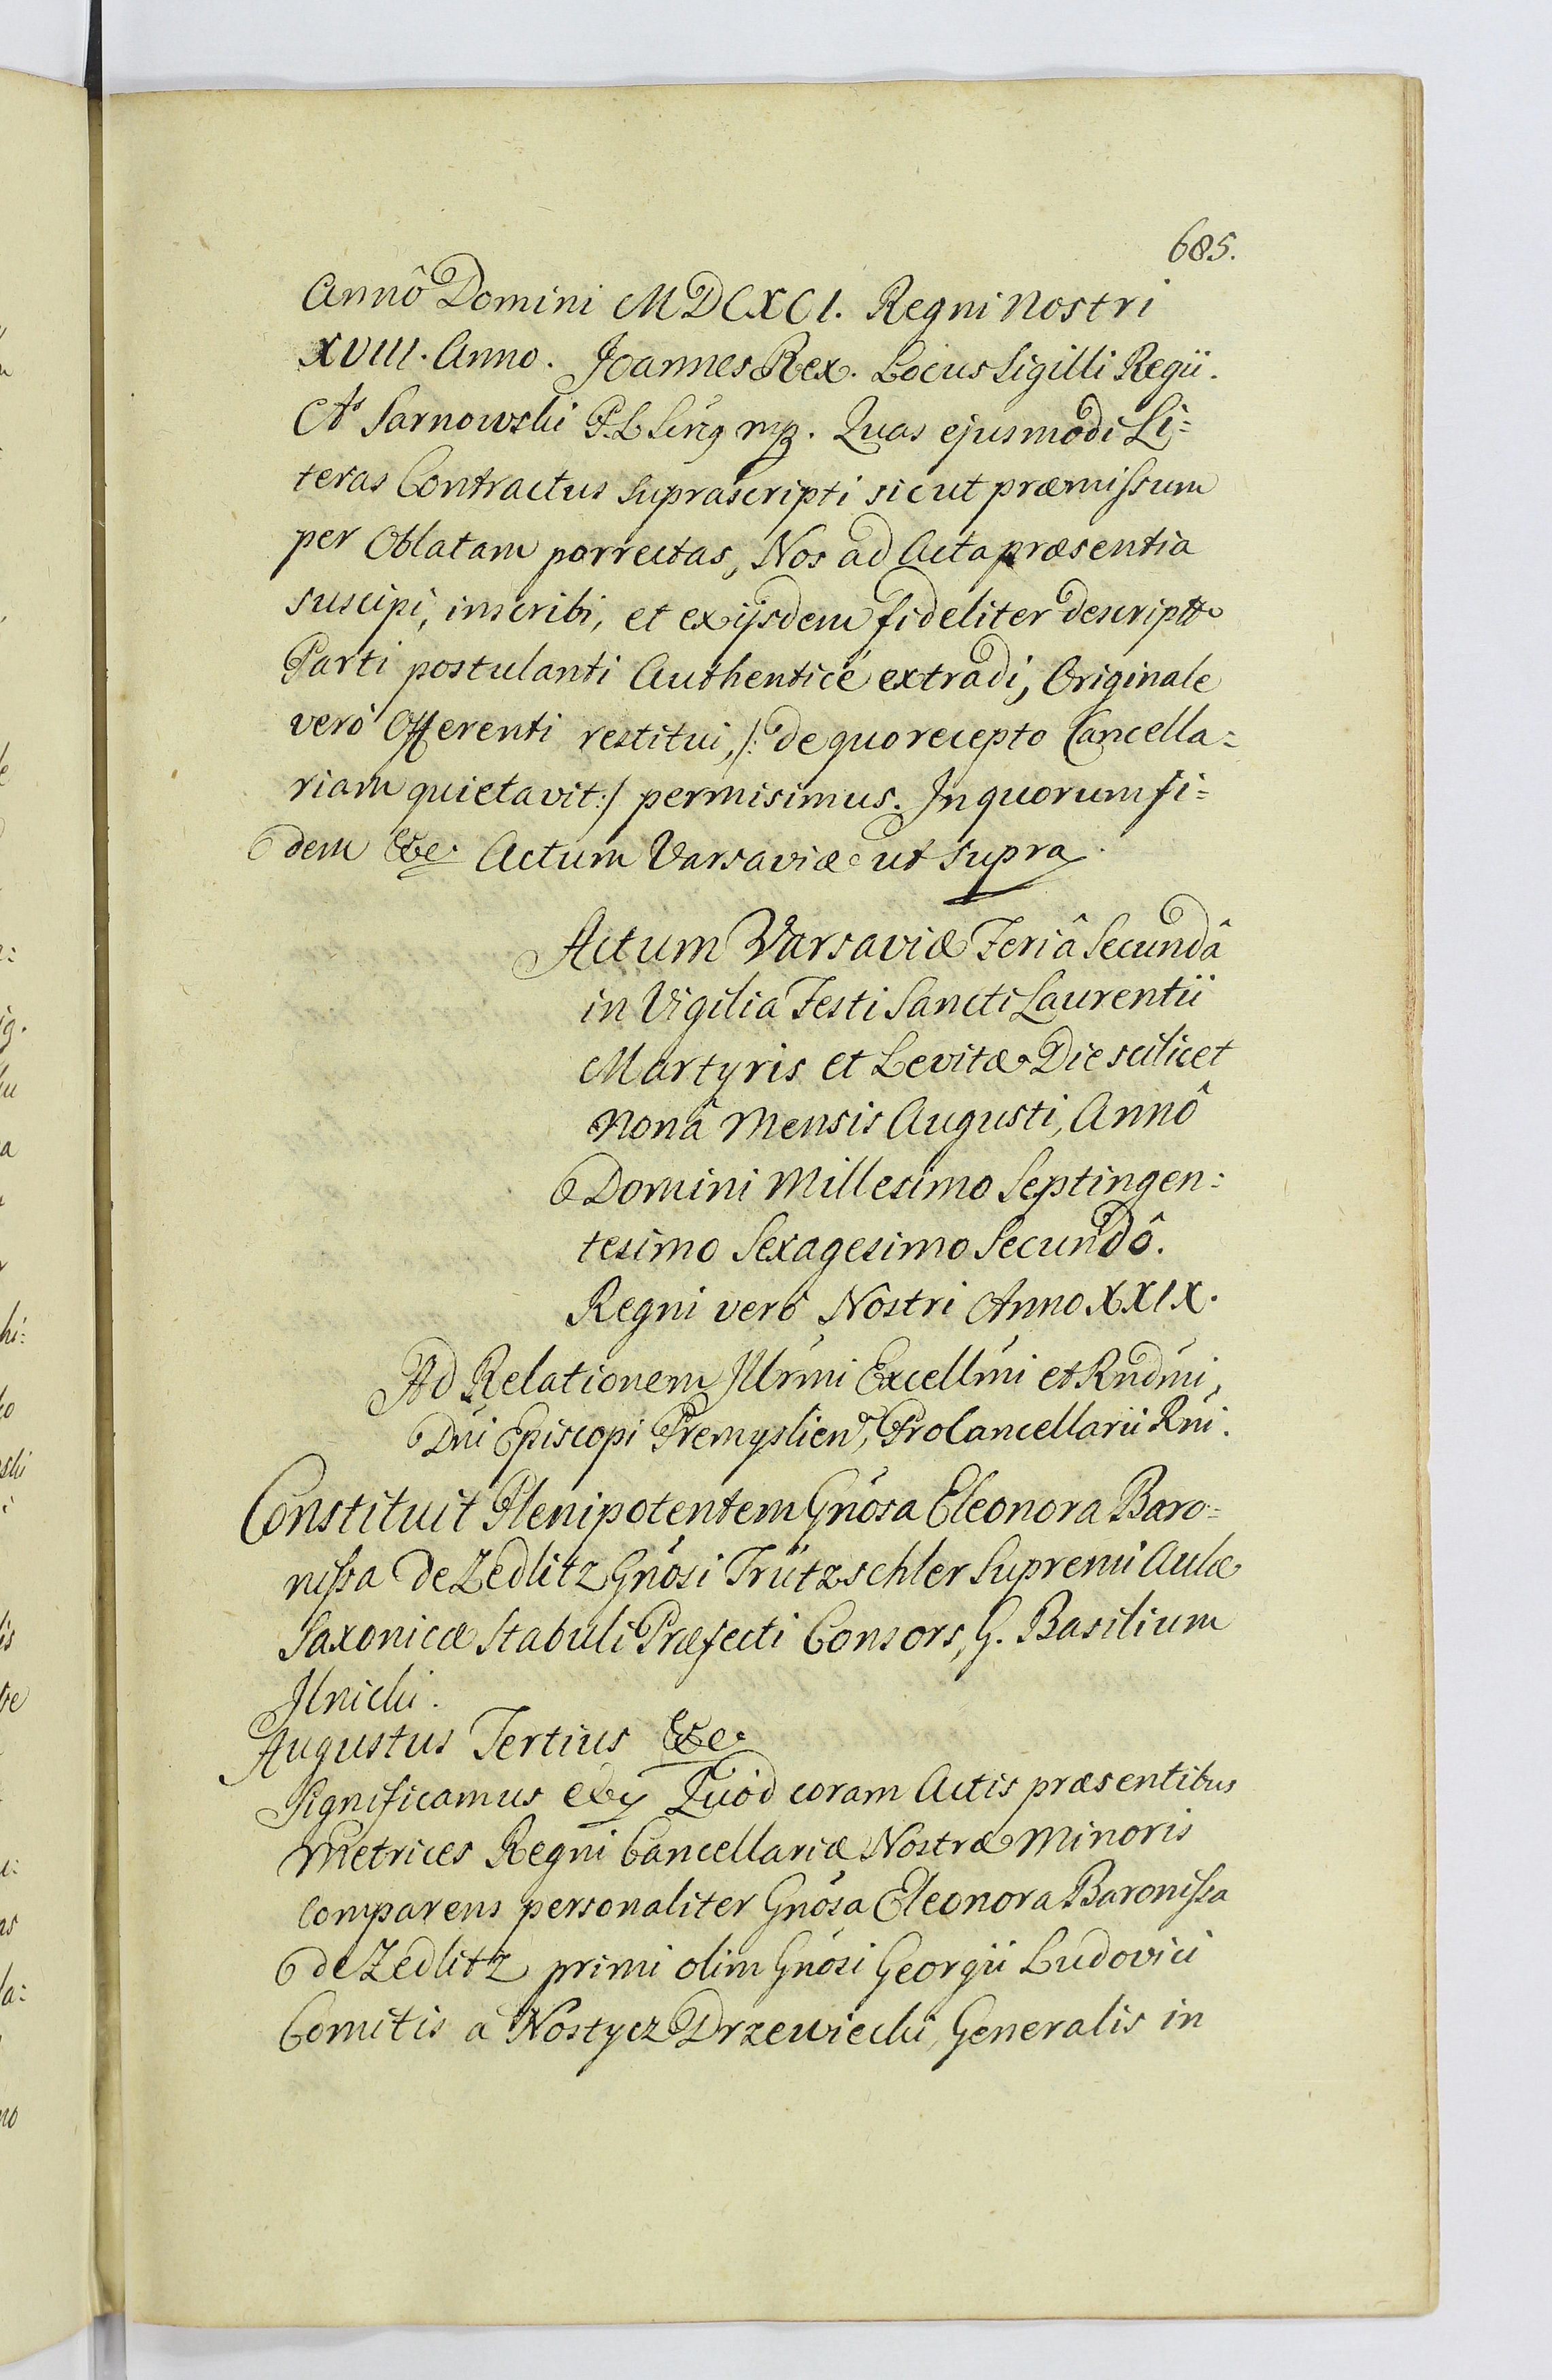 685.
Annô Domini MDCXCI. Regni Nostri
XVIII. Anno. Joannes Rex. Locus Sigilli Regii.
As Sarnowski mp. Quas ejusmodi Li=
teras Contractus suprascripti sicut præmissum
per Oblatam porrectas, Nos ad Acta præsentia
suscipi, inscribi, et ex ijsdem fideliter descriptto
Parti postulanti Authenticè extradi, Originale
verò Offerenti restitui, /: de quo recepto Cancella=
riam quietavit :/ permisimus. In quorum fi=
dem &c. Actum Varsaviæ ut supra.
Actum Varsaviæ Feriâ Secundâ
in Vigilia Festi Sancti Laurentii
Martyris et Levitæ Die scilicet
Nonâ Mensis Augusti, Annô
Domini Millesimo Septingen=
tesimo Sexagesimo Secundô.
Regni verò Nostri Anno XXIX.
Ad Relationem Illrmi Excellmi et Rndmi,
Dni Episcopi Premyslien, ProCancellarii Rni.
Constituit Plenipotentem Gnosa Eleonora Baro=
nissa de Zedlitz Gnosi Trützschler Supremi Aulæ
Saxonicæ Stabuli Præfecti Consors, G. Basilium
Ilnicki.
Augustus Tertius &c.
Significamus Quòd coram Actis præsentibus
Metrices Regni Cancellariæ Nostræ Minoris
comparens personaliter Gnosa Eleonora Baronissa
de Zedlitz primi olim Gnosi Georgii Ludovici
Comitis à Nostycz Drzewiecki, Generalis in